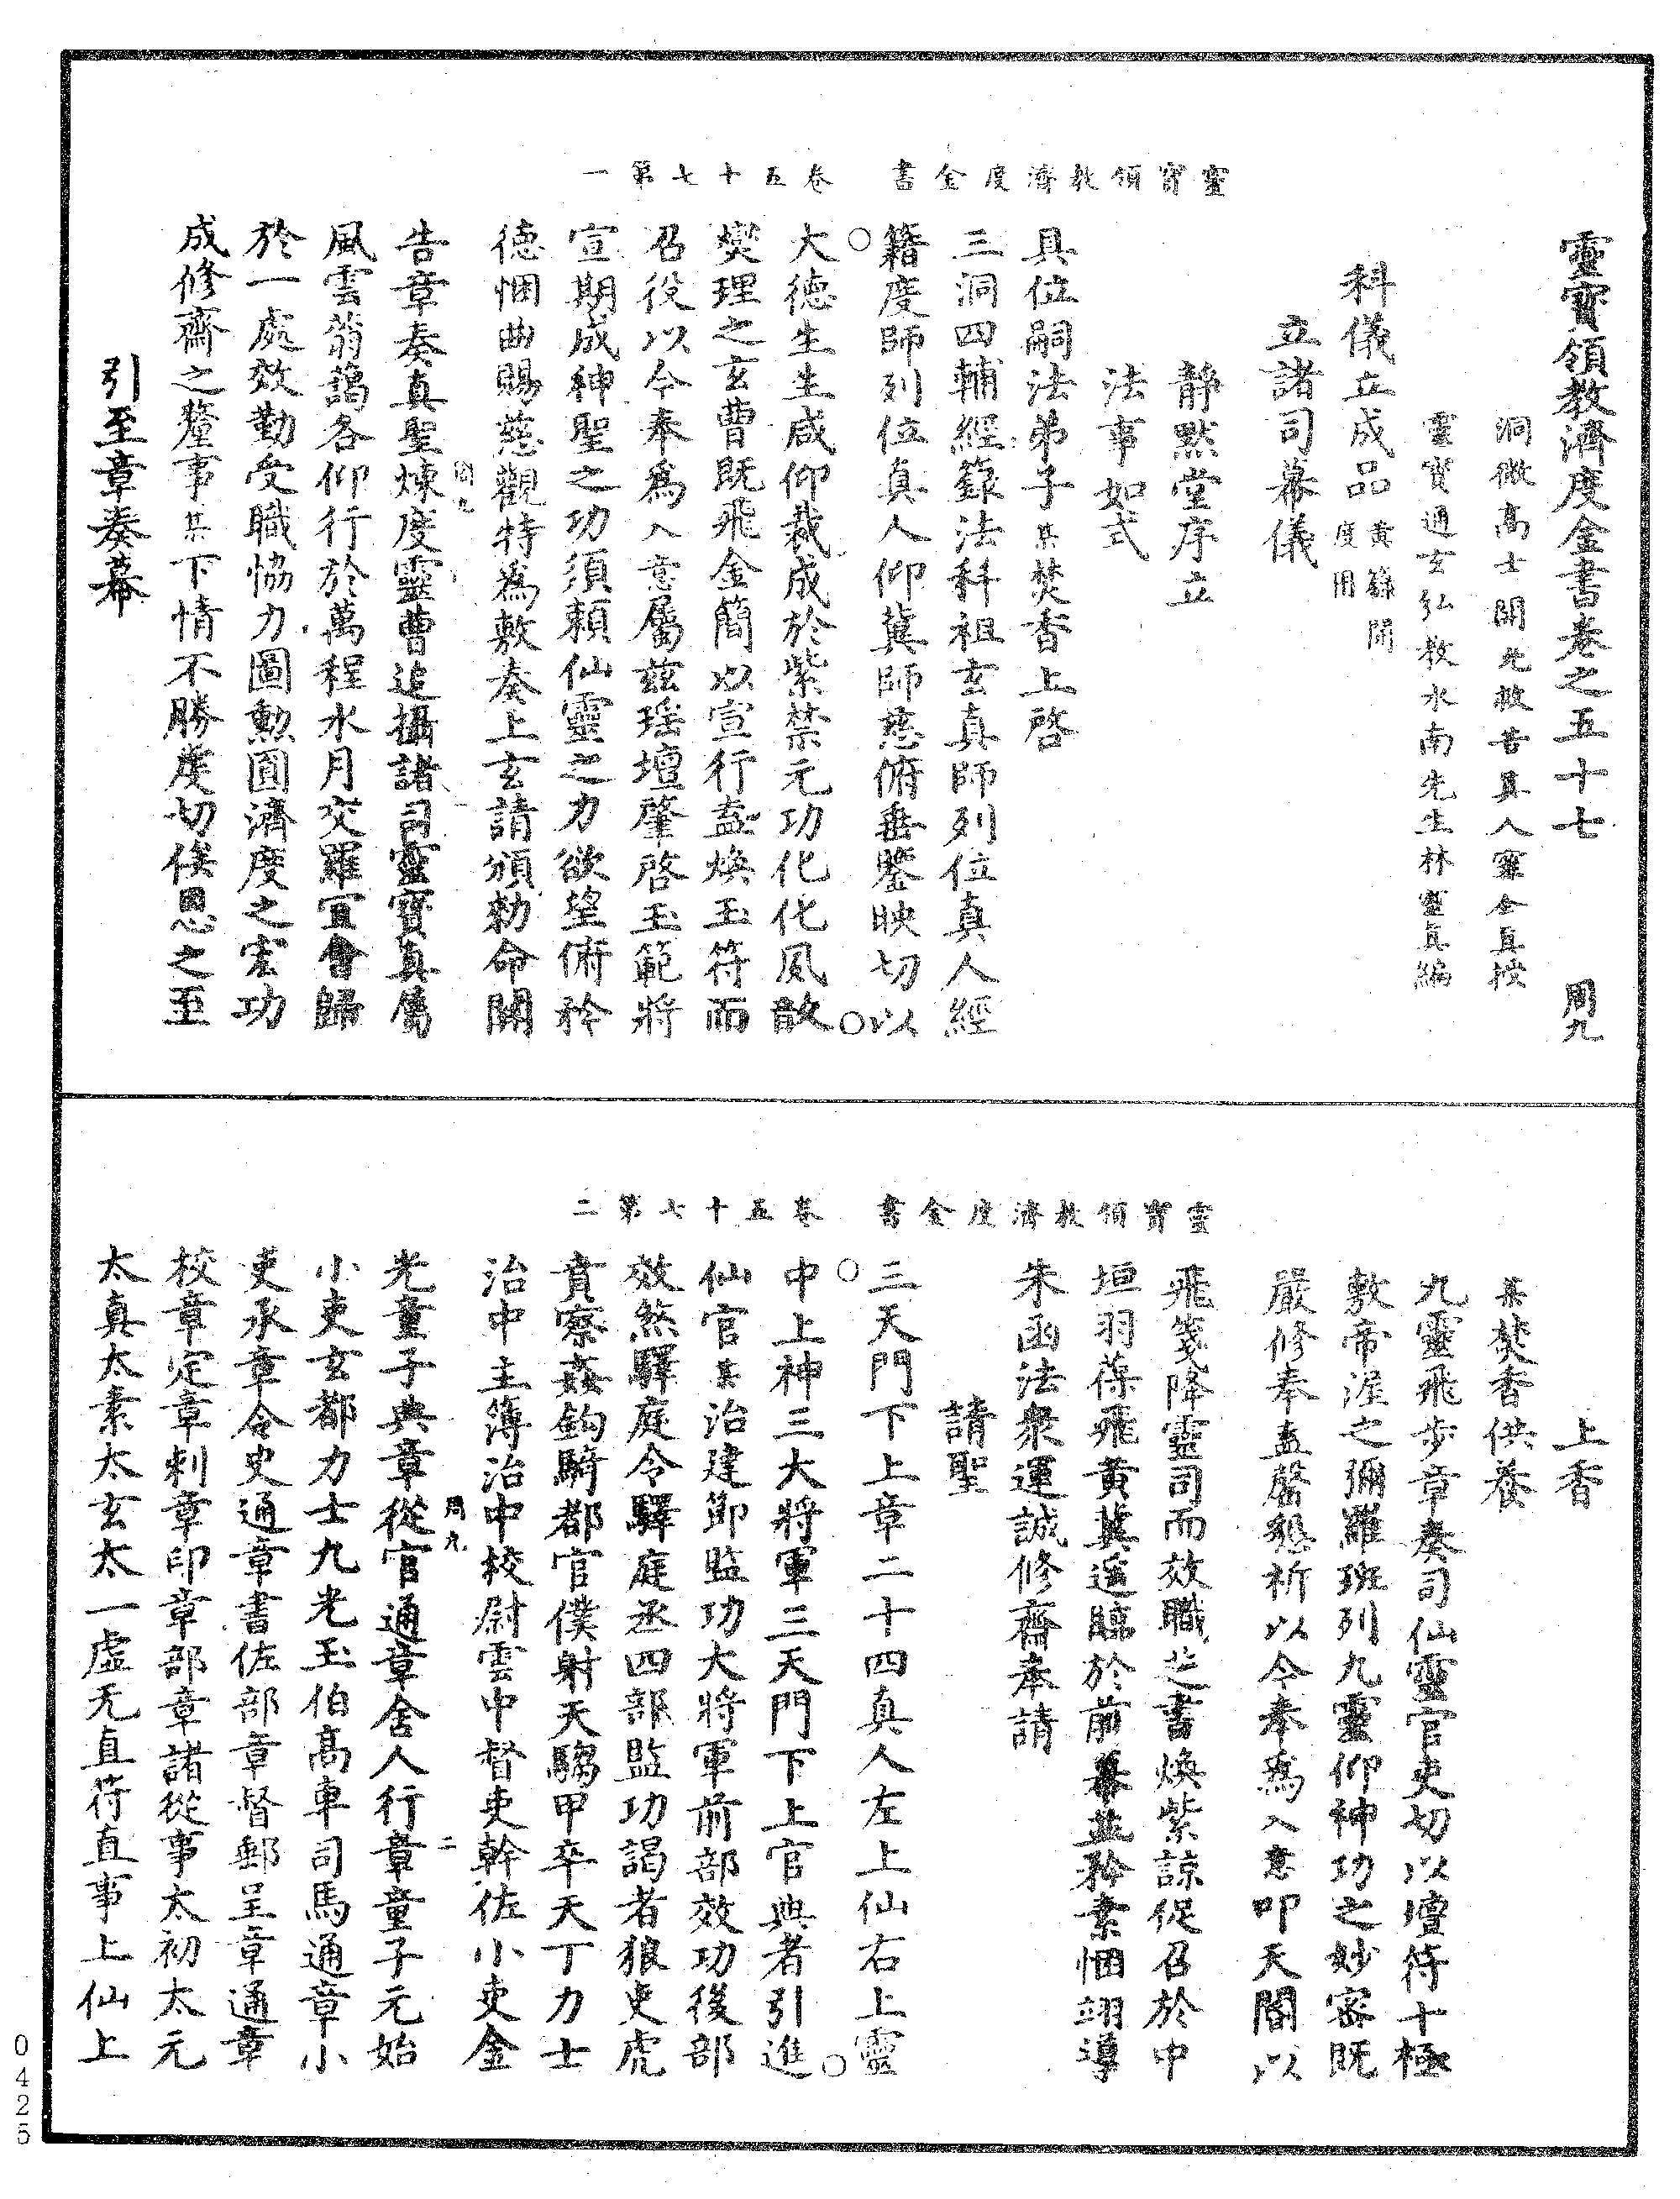 靈寶領教濟度金書卷之五十七　周九
洞微高士開光救苦真人甯全真授
靈寶通玄弘教水南先生林靈真編
科儀立成品黃籙開度用
立諸司幕儀
靜默堂序立
法事如式
具位嗣法弟子某焚香上啓
三洞四輔經籙法科祖玄真師列位真人經
籍度師列位真人仰冀師慈俯垂鑒映切以
大德生生咸仰裁成於紫禁元功化化夙散
爕理之玄曹既飛金簡以宣行盍煥玉符而
召役以今奉爲入意屬玆瑶壇肇啓玉範將
宣期成神聖之功須賴仙靈之力欲望俯矜
德悃曲賜慈觀特爲敷奏上玄請頒勑命關
告章奏真聖煉度靈曹追攝諸司靈寶真屬
風雲蓊藹各仰行於萬程水月交羅宜會歸
於一處效勤受職恊力圖勲圓濟度之宏功
成修齋之釐事某下情不勝虔切俟恩之至
引至章奏幕
靈寶領教濟度金書　卷五十七第一
周九
一
上香
某焚香供養
九靈飛步章奏司仙靈官吏切以壇符十極
敷帝渥之彌羅班列九靈仰神功之妙密既
嚴修奉盍罄懇祈以今奉爲入意叩天閽以
飛箋降靈司而效職芝書煥紫諒促召於中
垣羽葆飛黃冀遥臨於前幕並矜素悃翊導
朱函法衆運誠修齋奉請
請聖
三天門下上章二十四真人左上仙右上靈
中上神三大將軍三天門下上官典者引進
仙官某治建節監功大將軍前部效功後部
效煞驛庭令驛庭丞四部監功謁者狼吏虎
賁察姦鈎騎都官僕射天騶甲卒天丁力士
治中主簿治中校尉雲中督吏幹佐小吏金
光童子典章從官通章舍人行章童子元始
小吏玄都力士九光玉伯高車司馬通章小
吏承章令史通章書佐部章督郵呈章通章
校章定章刺章印章部章諸從事太初太元
太真太素太玄太一虛无直符直事上仙上
靈寶領教濟度金書　卷五十七第二
周九
二
0425